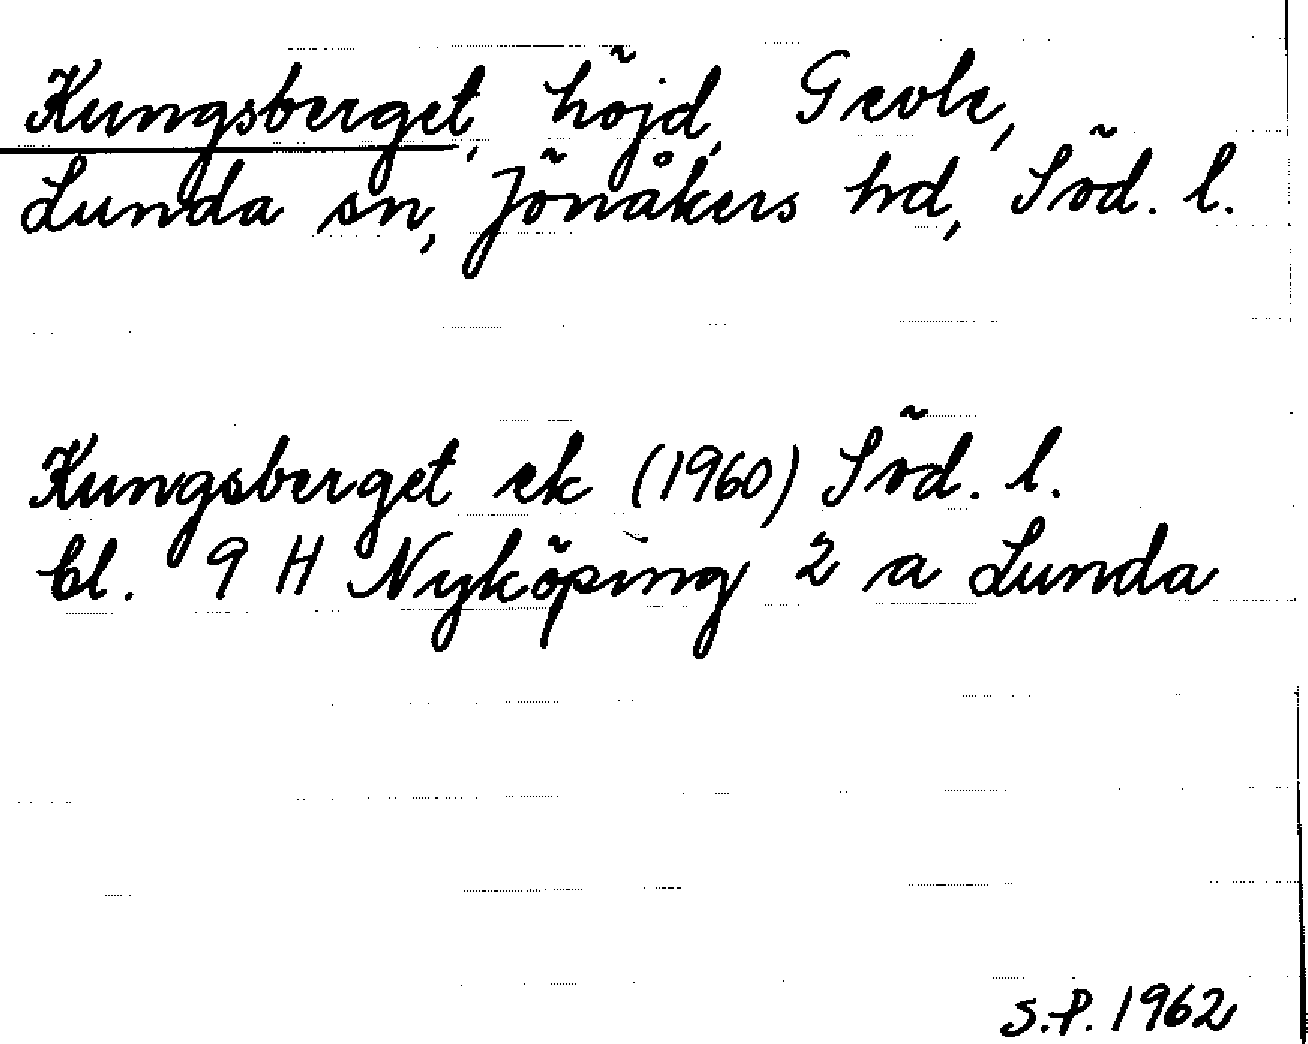 Kungsberget, höjd, Grevle,
Lunda sn, Jönåkers hd, Söd. l.
Kungsberget ek (1960) Söd. l.
bl. 9 H Nyköping 2 a Lunda
S.P. 1962